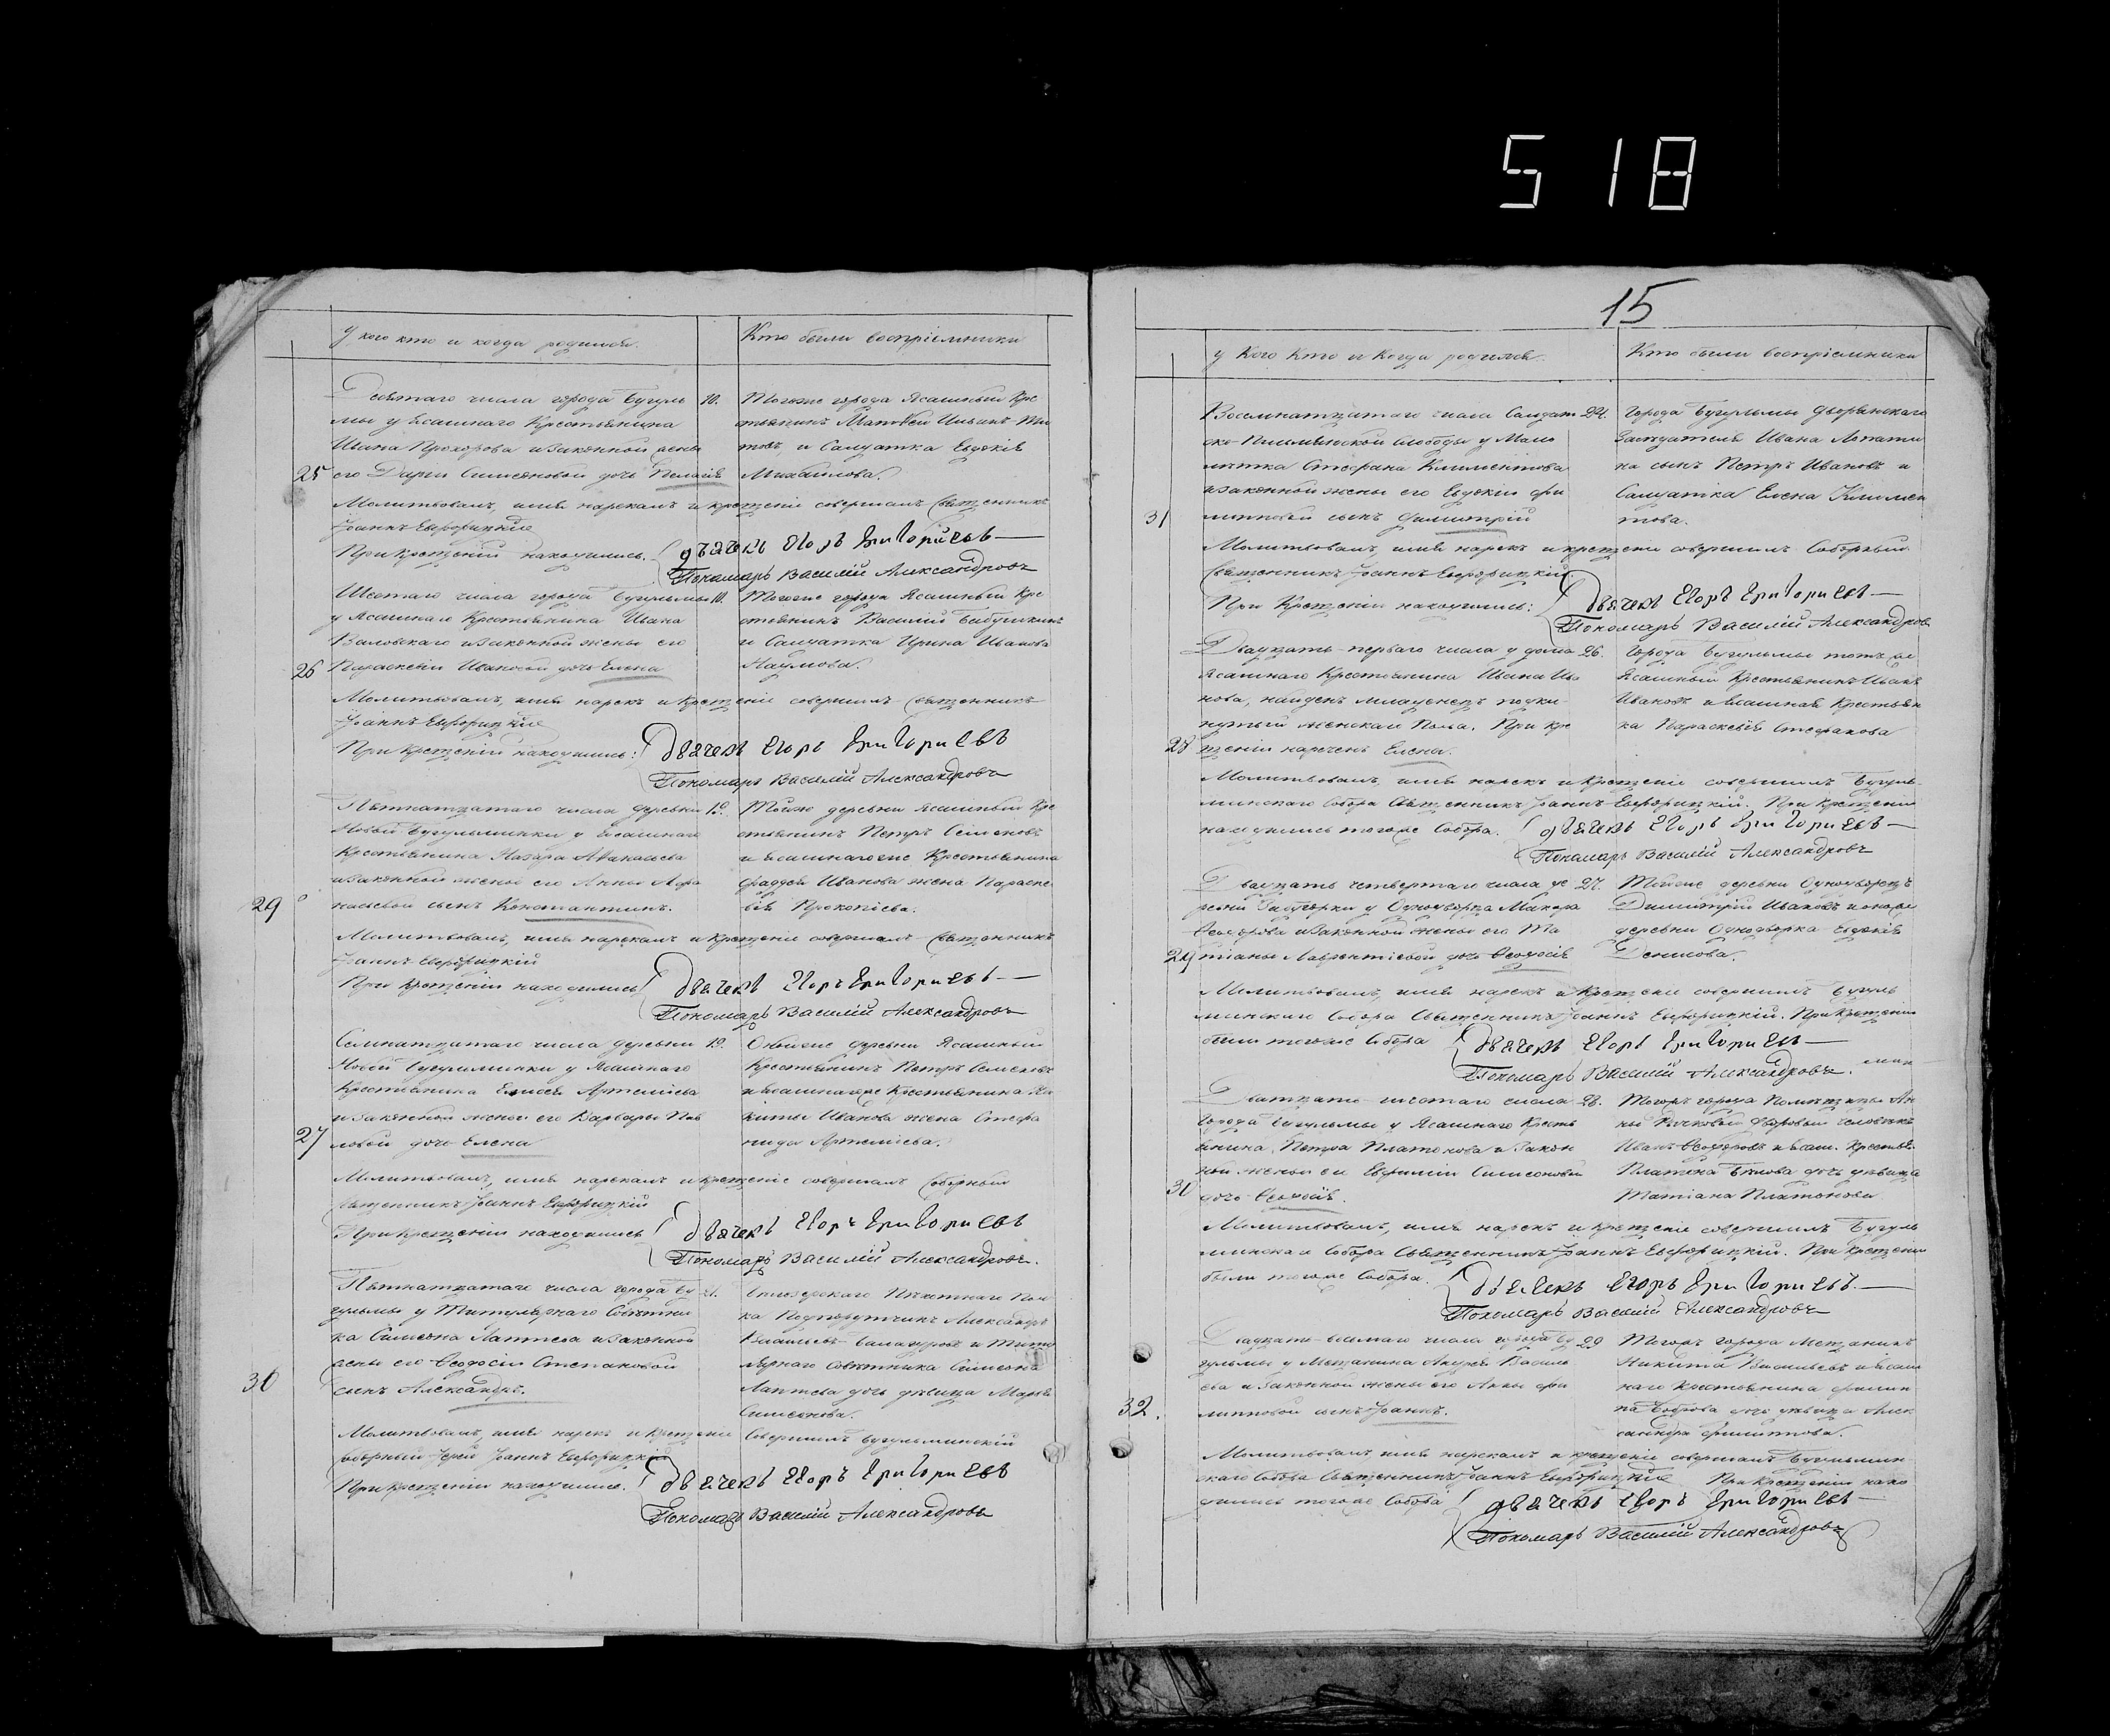 518
15
У кого кто и когда родился.
Кто были воспріемники
Девятаго числа города Бугуль
мы у Ясашнаго Крестьянина
Ивана Прохорова и законной жены
25 его Дарьи Симеоновой дочь Пелагія
10. Тогоже города Ясашный Кре
стьянинъ Матвей Ильинъ Ти
товъ, и Салдатка Евдокія
Михайлова.
Молитвовалъ, имя нарекалъ и крещеніе совершалъ Священникъ
Іоаннъ Евфорицкій
При Крещеніи находились. Дьячекъ Егоръ Григорьевъ
Пономарь Василій Александровъ
Шестаго числа города Бугульмы
у Ясашнаго Крестьянина Ивана
и законной жены его
26 Параскевіи Ивановой дочь Елена
10. Тогоже города Ясашный Кре
стьянинъ Василій Бабушкинъ
и Салдатка Ирина Иванова
Наумова.
Молитвовалъ, имя нарекъ и Крещеніе совершилъ Священникъ
Іоаннъ Евфорицкій
При Крещеніи находились: Дьячекъ Егоръ Григорьевъ
Пономарь Василій Александровъ
Пятнатцатаго числа деревни
Новой Бугульминки у Ясашнаго
Крестьянина Назара Аѳанасьева
и законной жены его Анны Аѳа
29 насьевой сынъ Константинъ.
19. Тойже деревни Ясашный Кре
стьянинъ Петръ Семеновъ
и Ясашнагоже Крестьянина
Фаддея Иванова жена Параске
вія Прокопіева.
Молитвовалъ, имя нарекалъ и Крещеніе совершалъ Священникъ
Іоаннъ Евфорицкій
При Крещеніи находились Дьячекъ Егоръ Григорьевъ
Пономарь Василій Александровъ
Семнатцатаго числа деревни
Новой Бугульминки у Ясашнаго
Крестьянина Елисея Артеміева
и законной жены его Варвары Пав
27 ловой дочь Елена
19. Оныяже деревни Ясашный
Крестьянинъ Петръ Семеновъ
и Ясашнагоже Крестьянина Ни
киты Иванова жена Стефа
нида Артеміева.
Молитвовалъ, имя нарекалъ и крещеніе совершалъ Соборный
Священникъ Іоаннъ Евфорицкій
При Крещеніи находились Дьячекъ Егоръ Григорьевъ
Пономарь Василій Александровъ.
Пятнатцатаго числа города Бу
гульмы у Титулярнаго Совѣтни
ка Симеона Лаптева и законной
жены его Ѳеодосіи Степановой
30 сынъ Александръ.
21. Пѣхотнаго Пол
ка Подпорутчикъ Александръ
и Титу
лярнаго Совѣтника Симеона
Лаптева дочь дѣвица Марья
Симеонова.
Молитвовалъ, имя нарекъ и Крещеніе Совершилъ Бугульминскій
Соборный Іерей Іоаннъ Евфорицкій
При Крещеніи находились. Дьячекъ Егоръ Григорьевъ
Пономарь Василій Александровъ
У Кого Кто и Когда родился.
Кто были воспріемники
Восемнатцатаго числа Салдат
ско-Письмянской слободы у Мало
лѣтка Стефана Климентова
и законной жены его Евдокіи Фи
31 липповой сынъ Димитрій
24. Города Бугульмы Дворянскаго
Засѣдателя Ивана Лопати
на сынъ Петръ Ивановъ и
Салдатка Елена Климен
това.
Молитвовалъ, имя нарекъ и крещеніе совершилъ Соборный
Священникъ Іоаннъ Евфорицкій.
При Крещеніи находились: Дьячекъ Егоръ Григорьевъ
Пономарь Василій Александров
Двадцать перваго числа у дома
Ясашнаго Крестьянина Ивана Ива
нова, найденъ младенецъ подки
нутый женскаго Пола. При кре
28 щеніи нареченъ Елена.
26. Города Бугульмы тотъ же
Ясашный Крестьянинъ Иванъ
Ивановъ и Ясашная Крестьян
ка Параскевія Стефанова
Молитвовалъ, имя нарекъ и Крещеніе совершилъ Бугуль
минскаго Собора Священникъ Іоаннъ Евфорицкій. При крещеніи
находились тогоже Собора. Дьячекъ Егоръ Григорьевъ
Пономарь Василій Александровъ
Двадцать четвертаго числа де
ревни у Однодворца Макара
Ѳеодорова и законной жены его Та
29 тіаны Лаврентіевой дочь Ѳеодосія
27. Тойже деревни Однодворецъ
Димитрій Ивановъ и оной же
деревни Однодворка Евдокія
Денисова.
Молитвовалъ, имя нарекъ и Крещеніе совершилъ Бугуль
минскаго Собора Священникъ Іоаннъ Евфорицкій. При Крещеніи
были тогоже Собора Дьячекъ Егоръ Григорьевъ
Пономарь Василій Александровъ.
Дватцать шестаго числа
Города Бугульмы у Ясашнаго Кресть
янина Петра Платонова и закон
ной жены его Евфиміи Симеоновой
30 дочь Ѳеодосія.
28. Тогожъ города Помѣщицы Ан
ны Дворовый человѣкъ
Иванъ Ѳеодоровъ и Ясаш. Крестья
Платона Бѣлова дочь дѣвица
Татіана Платонова
Молитвовалъ, имя нарекъ и Крещеніе совершилъ Бугуль
минскаго Собора Священникъ Іоаннъ Евфорицкій. При Крещеніи
были тогоже Собора. Дьячекъ Егоръ Григорьевъ.
Пономарь Василій Александровъ
Двадцать осьмаго числа города Бу
гульмы у Мещанина Андрея Василь
ева и законной жены его Анны Фи
32. липповой сынъ Іоаннъ.
29 Тогожъ города Мещанинъ
Никита Васильевъ и Ясаш
наго Крестьянина Филип
па Боброва дочь дѣвица Алек
сандра Филиппова.
Молитвовалъ имя нарекалъ и крещеніе совершалъ Бугульмин
скаго Собора Священникъ Іоаннъ Евфорицкій При Крещеніи нахо
дились тогоже Собора Дьячекъ Егоръ Григорьевъ
Пономарь Василій Александровъ